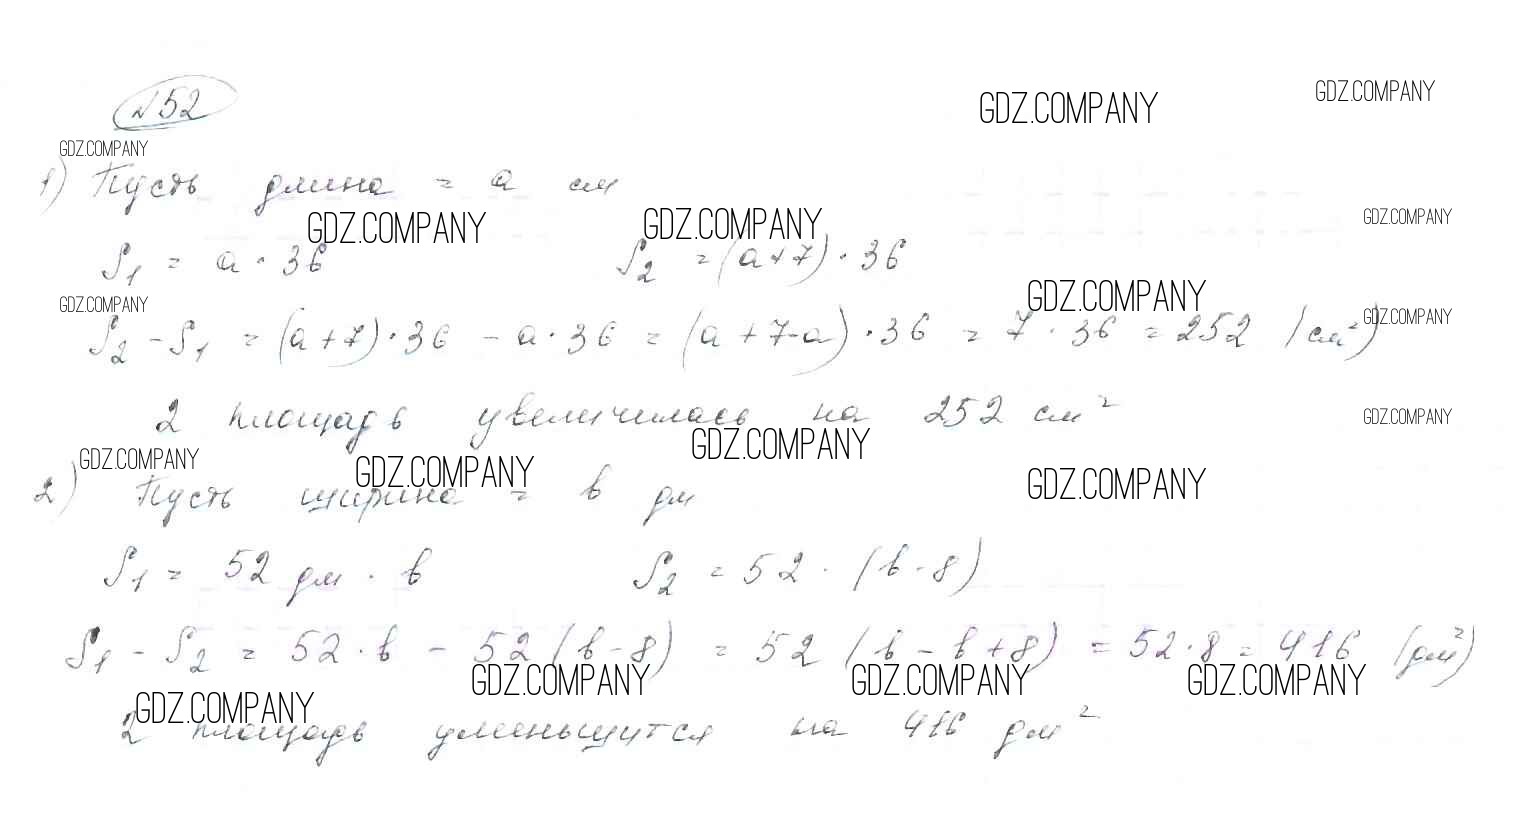 №52
GDZ.COMPANY GDZ.COMPANY
GDZ.COMPANY
1) Пусть длина = а см
GDZ.COMPANY GDZ.COMPANY GDZ.COMPANY
S1 = а · 36 S2 = (а+7) · 36
GDZ.COMPANY GDZ.COMPANY GDZ.COMPANY
S2 - S1 = (а+7) · 36 - а · 36 = (а + 7-а) · 36 = 7 · 36 = 252 (см²)
2 площадь увеличилась на 252 см²
GDZ.COMPANY
GDZ.COMPANY GDZ.COMPANY GDZ.COMPANY GDZ.COMPANY
2) Пусть ширина = в дм
S1 = 52 дм · в S2 = 52 · (в-8)
S1 - S2 = 52 · в - 52 (в-8) = 52 (в - в+8) = 52·8 = 416 (дм²)
GDZ.COMPANY GDZ.COMPANY GDZ.COMPANY GDZ.COMPANY
2 площадь уменьщится на 416 дм²